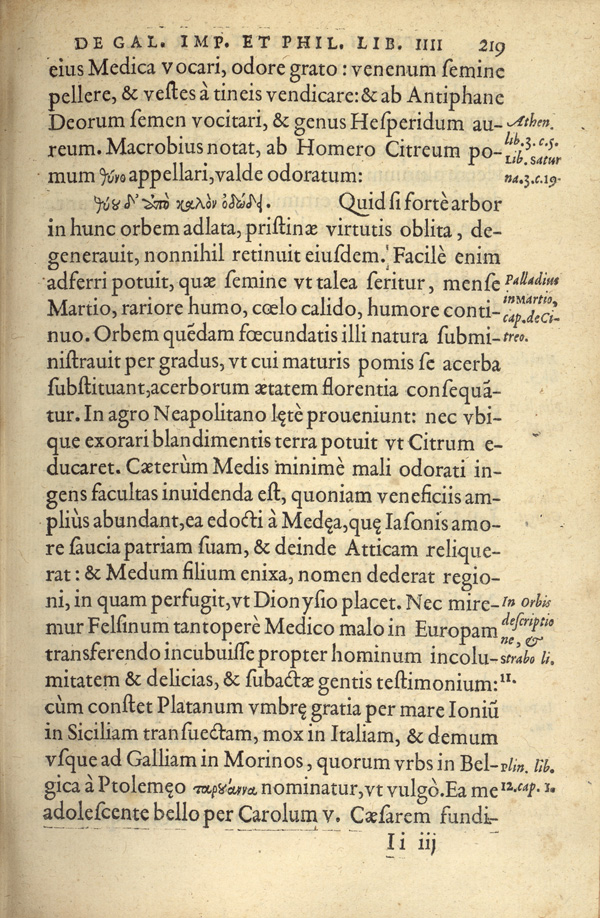 DE GAL. IMP. ET PHIL. LIB. IIII 219
eius Medica vocari, odore grato : venenum ſemine
pellere, & veſtes à tineis vendicare: & ab Antiphane
Deorum ſemen vocitari, & genus Heſperidum au-
Athen.
lib.3.c.5.
reum. Macrobius notat, ab Homero Citreum po-
Lib. satur
mum appellari, valde odoratum:
na.3.c.19.
Quid ſi fortè arbor
in hunc orbem adlata, priſtinæ virtutis oblita, de-
generauit, nonnihil retinuit eiuſdem. Facilè enim
adferri potuit, quæ ſemine vt talea ſeritur, menſe
Palladius
Martio, rariore humo, cœlo calido, humore conti-
in Martio,
cap. de Ci-
nuo. Orbem quẽdam fœcunditatis illi natura ſubmi-
treo.
niſtrauit per gradus, vt cui maturis pomis ſe acerba
ſubſtituant, acerborum ætatem florentia conſequã-
tur. In agro Neapolitano lętè proueniunt: nec vbi-
que exorari blandimentis terra potuit vt Citrum e-
ducaret. Cæterùm Medis minimè mali odorati in-
gens facultas inuidenda eſt, quoniam veneficiis am-
pliùs abundant, ea edocti à Medęa, quę Iaſonis amo-
re ſaucia patriam ſuam, & deinde Atticam relique-
rat : & Medum filium enixa, nomen dederat regio-
ni, in quam perfugit, vt Dionyſio placet. Nec mire-
In Orbis
mur Felſinum tantoperè Medico malo in Europam
deſcriptio
ne, &
transferendo incubuiſſe propter hominum incolu-
strabo li.
mitatem & delicias, & ſubactæ gentis teſtimonium:
11.
cùm conſtet Platanum vmbrę gratia per mare Ioniũ
in Siciliam tranſuectam, mox in Italiam, & demum
vſque ad Galliam in Morinos, quorum vrbs in Bel-
plin. lib.
gica à Ptolemęo ταρουάννα nominatur, vt vulgò. Ea me
12. cap. 1.
adoleſcente bello per Carolum V. Cæſarem fundi-
Ii iij